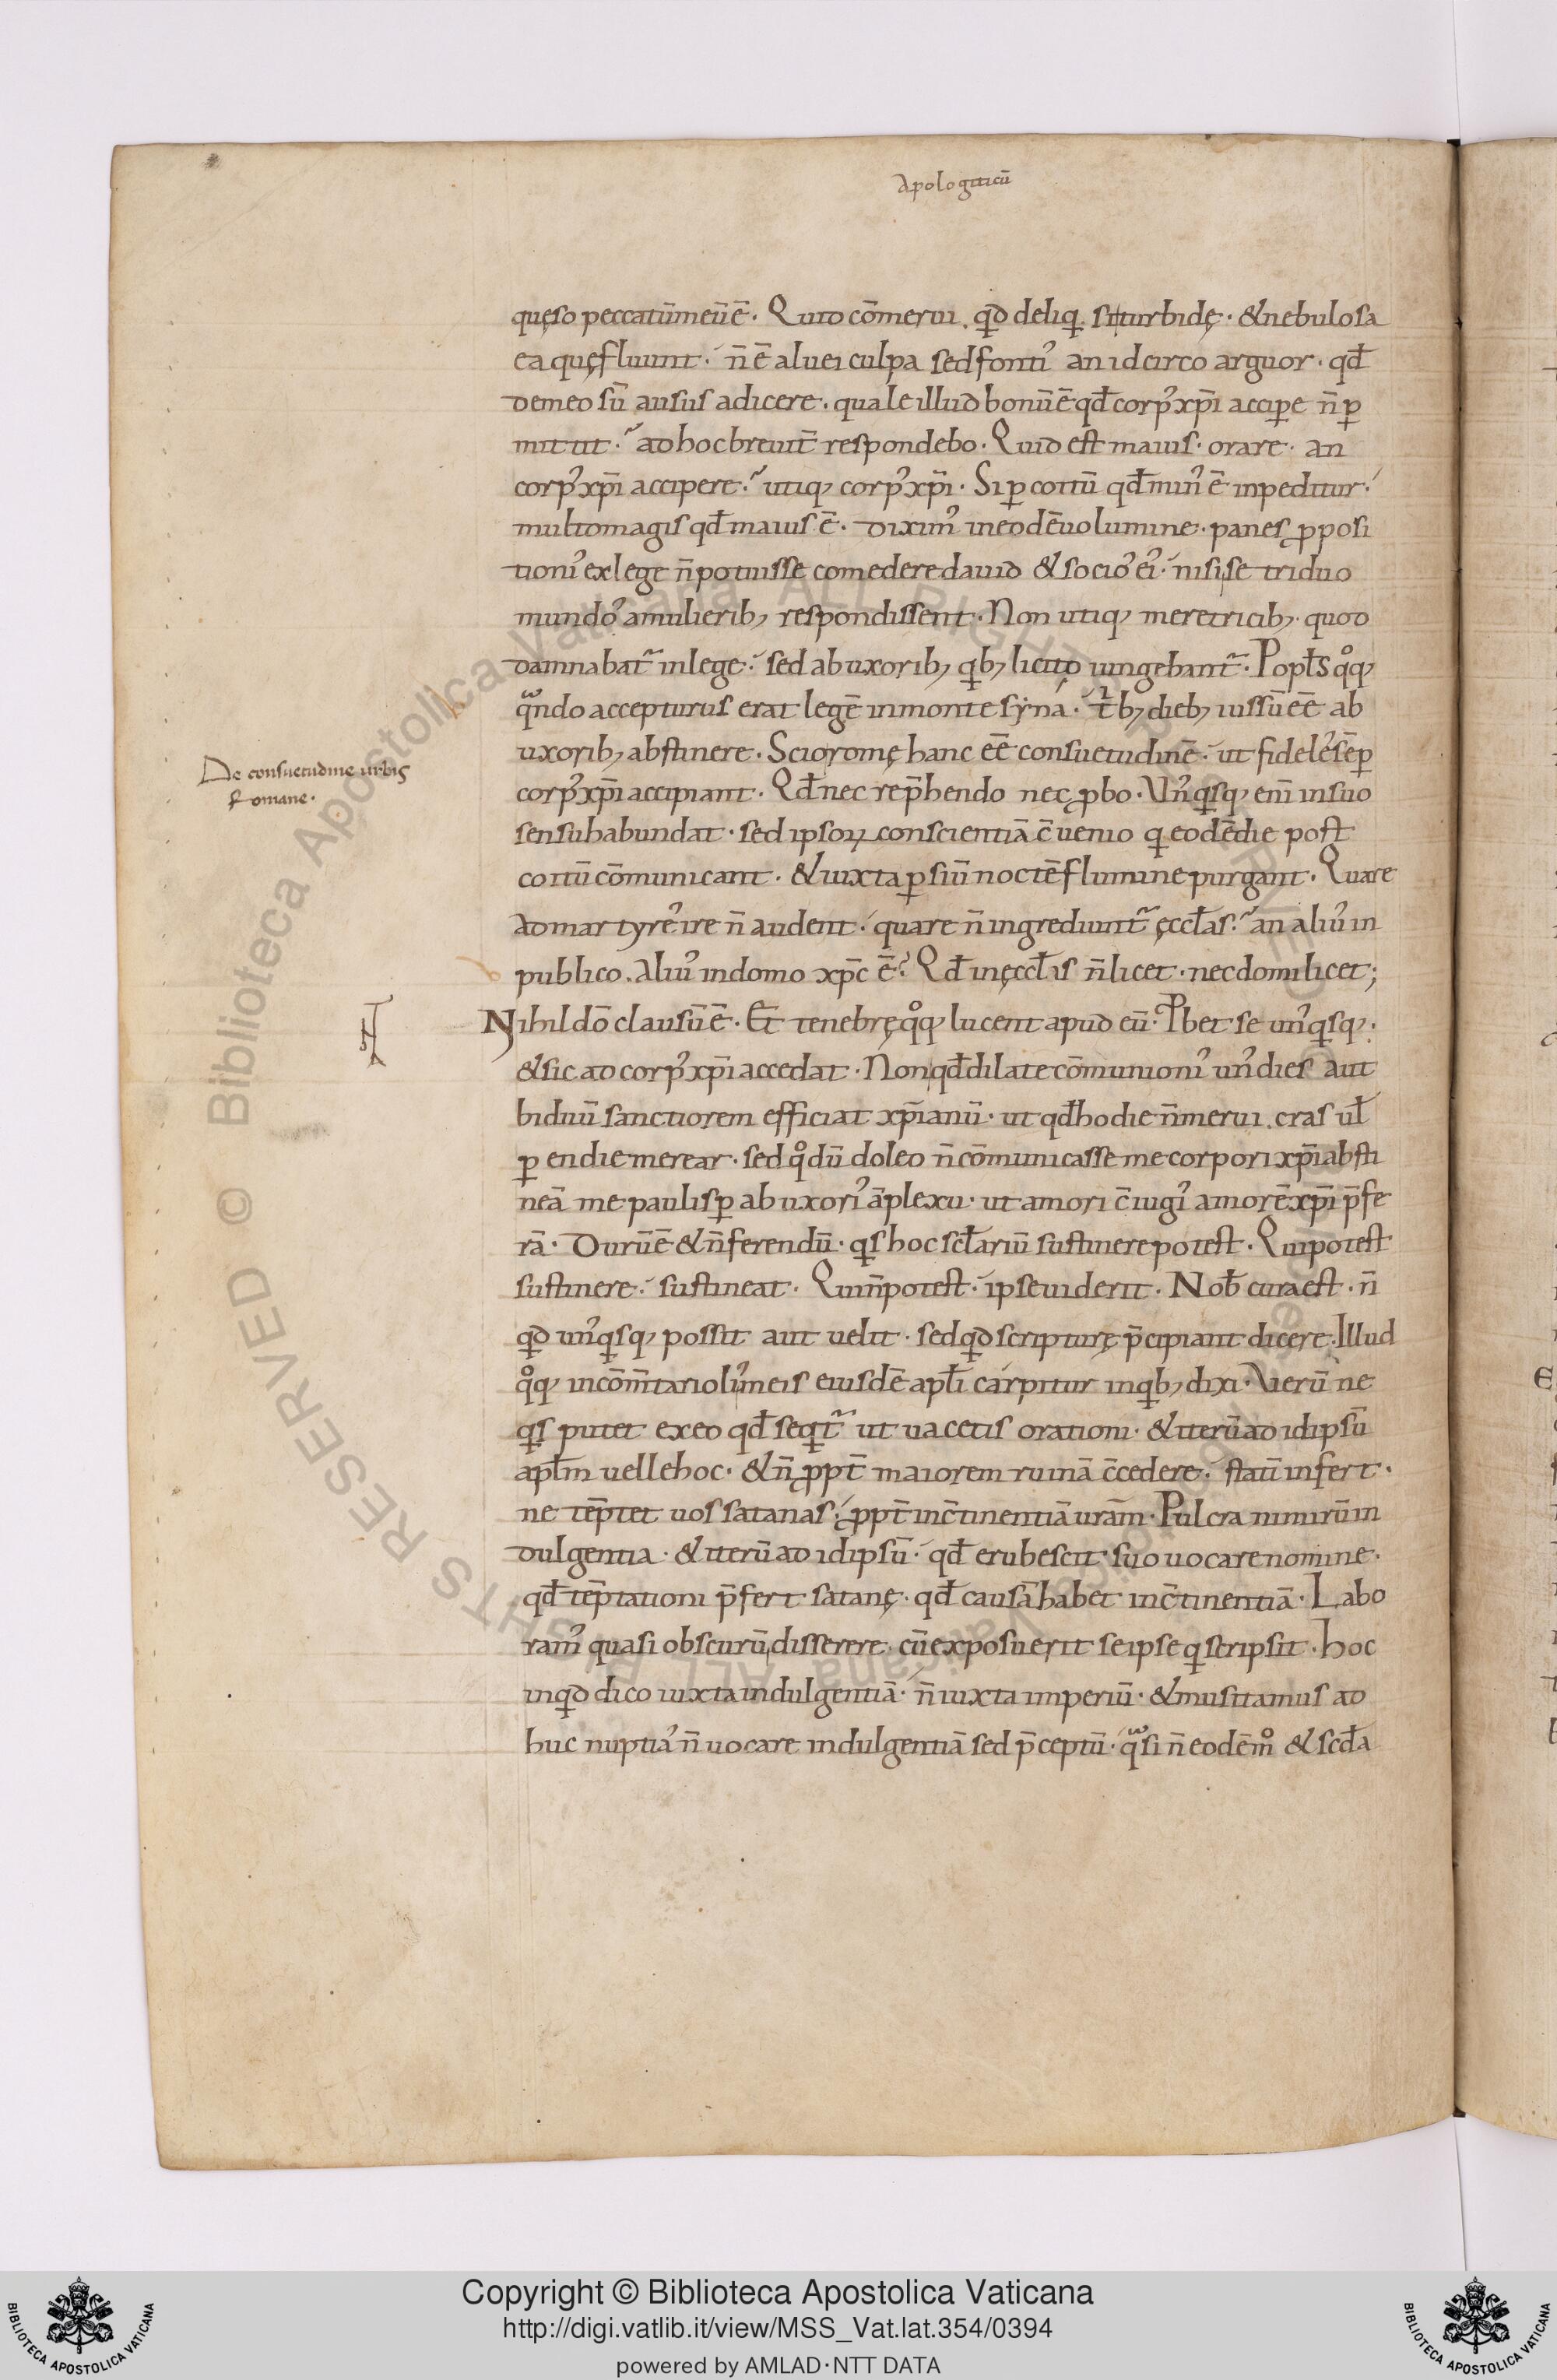 Apologiticū
quęso peccatūmeūē. Quid cōmerui. qd deliqi. si turbidę. &nebulosa
ea quęfluunt. n̄ē aluei culpa sedfonti᾽ an idcirco arguor. qd̄
demeo sū ausus adicere. quale illud bonūē qd̄ corp᾽xp̄i accipe n̄ p
mittit. ad hocbreuit̄ respondebo. Quid est maius. orare. an
corp᾽xp̄i accipere. utiq; corp᾽xp̄i. Si p coitū qd̄ min᾽ ē inpeditur.
multomagis qd̄ maius ē. dixim᾽ ineodēuolumine. panes pposi
tioni᾽ exlege n̄potuisse comedere dauid & socio᾽ ei᾽. nisi se triduo
mundo᾽ amulierib; respondissent. Non utiq; meretricib; quod
damnabat̄ inlege. sed abuxorib; qib; licito iungebant̄. Popl̄s qoq;
qando accepturus erat legē inmonte syna. tib; dieb; iussū eē ab
uxorib; abstinere. Scioromę hanc eē consuetudinē. ut fidele᾽ sēp
corp᾽xp̄i accipiant. Qd̄ nec rep̄hendo nec pbo. Un᾽qisq; eni̅ insuo
sensuhabundat. sed ipsoꝝ conscientiā c̄uenio qi eodēdie post
coitū cōmunicant. &iuxta psiū noctē flumine purgant. Quare
admartyre᾽ ire n̄ audent. quare n̄ ingrediunt̄ ęccl̄as. an aliu᾽ in
publico. aliu᾽ indomo xp̄c ē. Qd̄ inęccl̄is n̄ licet. nec domi licet;
Nihil dō clausūē. Et tenebręqoq; lucent apud eū. Pbet se un᾽qisq;.
&sic ad corp᾽xp̄i accedat. Nonqd̄ dilate cōmunioni᾽ un᾽ dies aut
biduū sanctiorem efficiat xp̄ianū. ut qd̄ hodie n̄merui. cras ul̄
p endie merear. sed qodū doleo n̄ cōmunicasse me corpori xp̄i absti
neā me paulisp ab uxori᾽ āplexu. ut amori c̄iugi᾽ amorē xp̄i p̄fe
rā. Durūē &n̄ferendū. qis hoc scl̄ariū sustinere potest. Quipotest
sustinere. sustineat. Quin̄potest. ipse uiderit. Nob̄ cura est. n̄
qid un᾽qisq; possit aut uelit. sed qid scripturę p̄cipiant dicere. Illud
qoq; incōm̄tarioli᾽ meis eiusdē apl̄i carpitur inqib; dixi. Uerū ne
qis putet exeo qd̄ seqit̄ ut uacetis orationi. &iterū ad idipsū
apl̄m uelle hoc. &n̄ ppt̄ maiorem ruinā c̄cedere. statī infert.
ne tēptet uos satanas. ppt̄ inc̄tinentiā ur̄am. Pulcra nimirū in
dulgentia. &iterū ad idipsū. qd̄ erubescit suo uocare nomine.
qd̄ tēptationi p̄fert satanę. qd̄ causā habet inc̄tinentiā. Labo
ram᾽ quasi obscurū disserere. cū exposuerit se ipse qi scripsit. hoc
inqid dico iuxtaindulgentiā. n̄ iuxta imperiū. &musitamus ad
huc nuptia᾽ n̄ uocare indulgentiā sed p̄ceptū. qasi n̄ eodē mo & scd̄a
De consuetudine urbis
Romane.
Copyright © Biblioteca Apostolica Vaticana
http://digi.vatlib.it/view/MSS_Vat.lat.354/0394
powered by AMLAD·NTT DATA
BIBLIOTECA APOSTOLICA VATICANA
BIBLIOTECA APOSTOLICA VATICANA